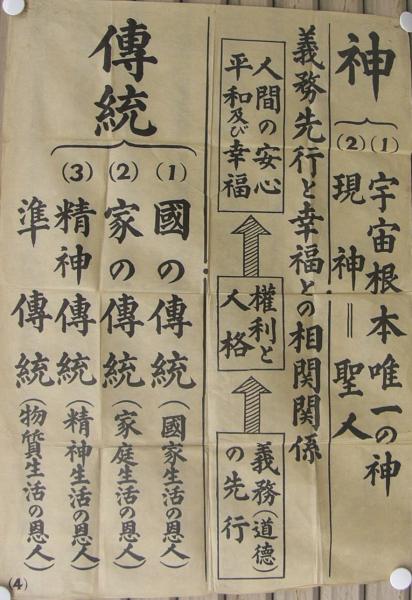 神
(1) 宇宙根本唯一の神
(2) 現神＝聖人
義務先行と幸福との相関関係
義務（道德）
の先行
權利と
人格
人間の安心
平和及び幸福
傳統
(1) 國の傳統（國家生活の恩人）
(2) 家の傳統（家庭生活の恩人）
(3) 精神傳統（精神生活の恩人）
準傳統（物質生活の恩人）
(4)